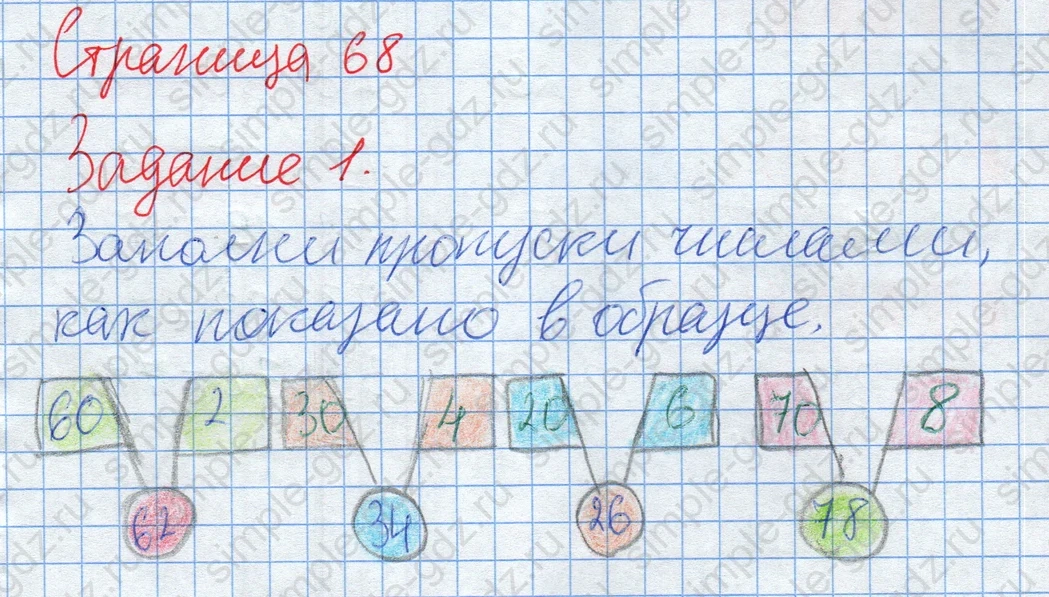 Страница 68
Задание 1.
Заполни пропуски числами,
как показано в образце.
60 2 30 4 20 6 70 8
62 34 26 78
simple-gdz.ru